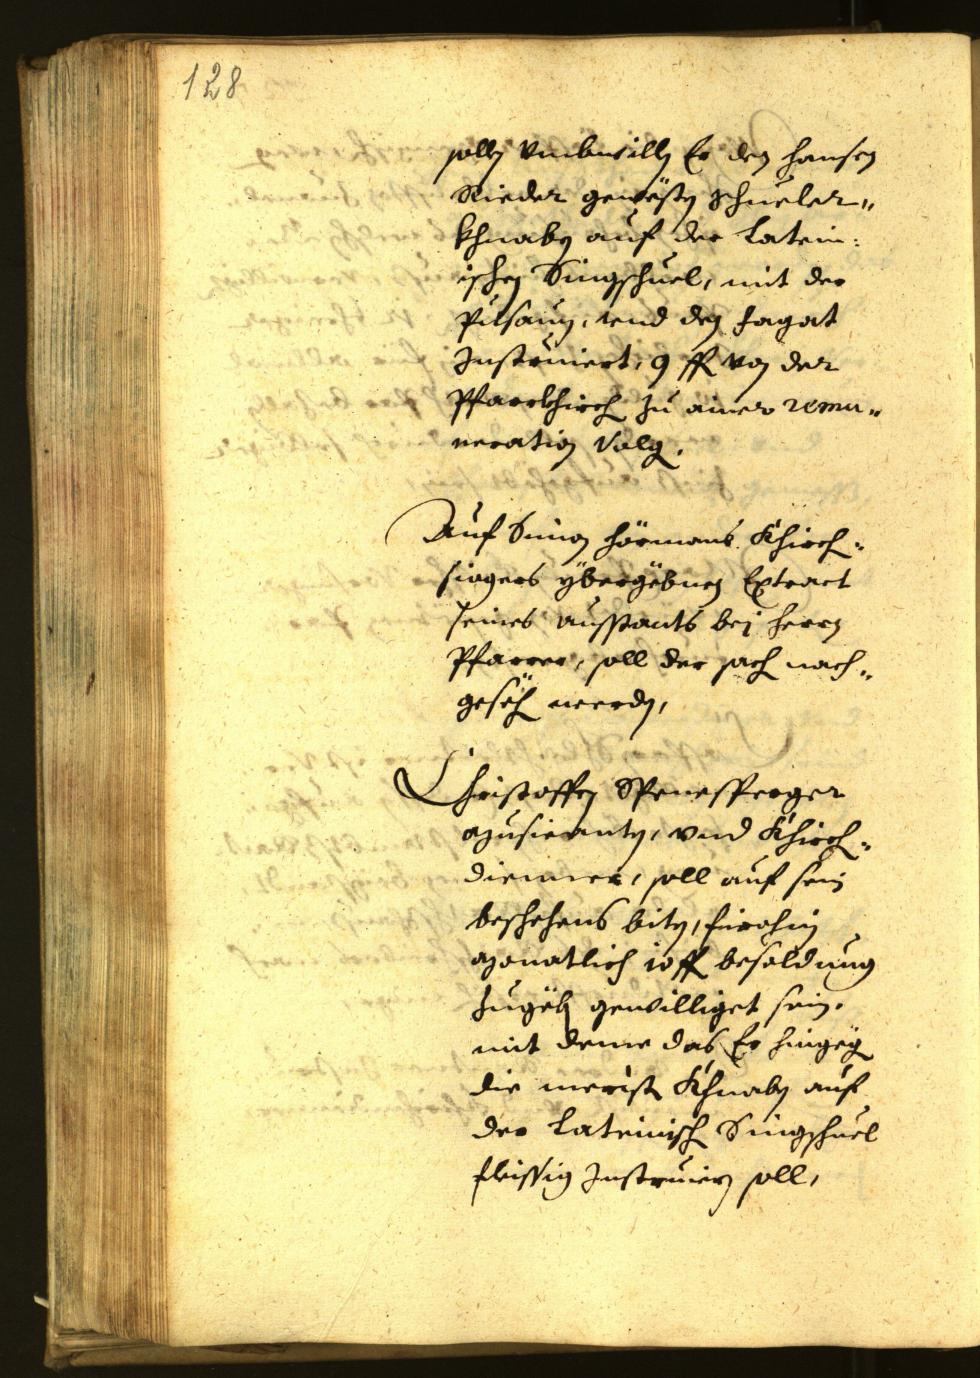 128
solln Umbwilln Er den hansen
Rieder gewesten schueler„
Khnaben auf der Latein:
ischen Singschuel, mit der
Pusaun, und den fagat
Instruiert, 9 ff von der
Pfarrkhirch zu ainer remu„
neration volgen.
Auf Simon hörmans Khirch„
singers ybergebnen Extract
seines ausstants bej herrn
Pfarrer, soll der sach nach„
gesehen werden,
Christoffen Spenesperger
Musicanten, und Khirch„
diener, soll auf sein
beschehens biten, fürohin
Monatlich 10 ff besoldung
zugeben gewilliget sein.
mit deme das Er hingegen
die merist Khnaben auf
der Lateinisch Singschuel
fleissig Instruiern soll,